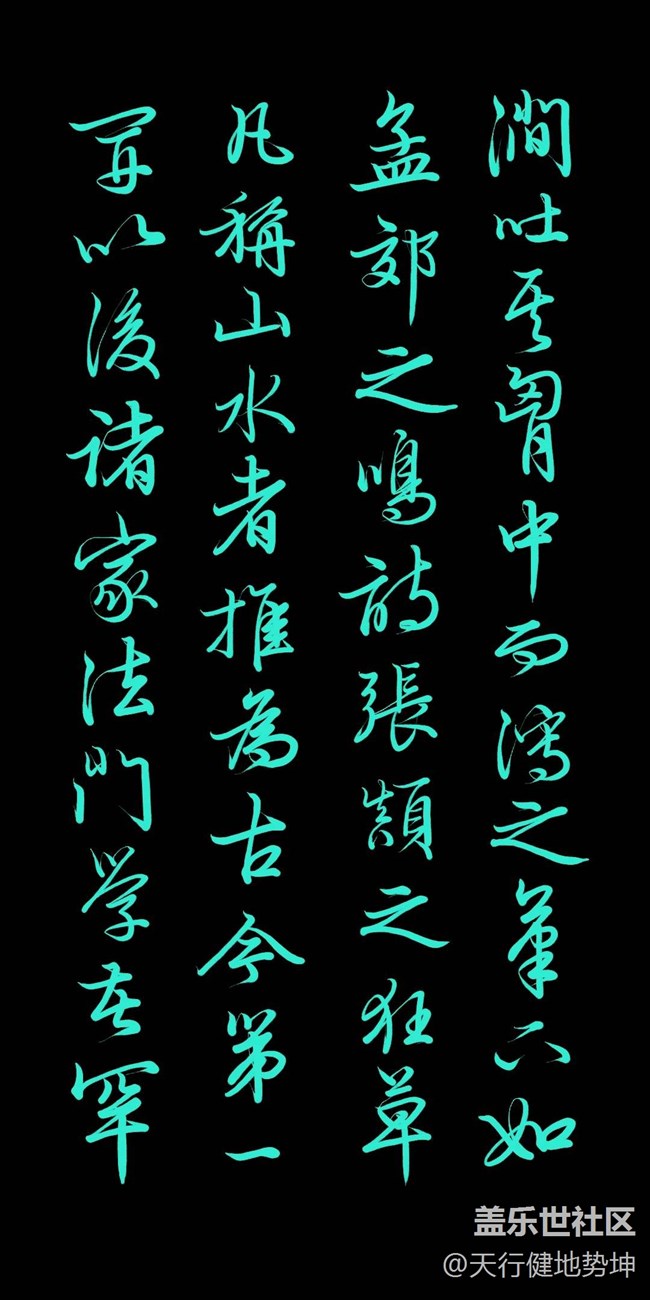 澗吐其胷中而瀉之筆亦如
孟郊之鳴詩張顛之狂草
凡稱山水者推為古今第一
以後諸家法門学者罕
盖乐世社区
@天行健地势坤